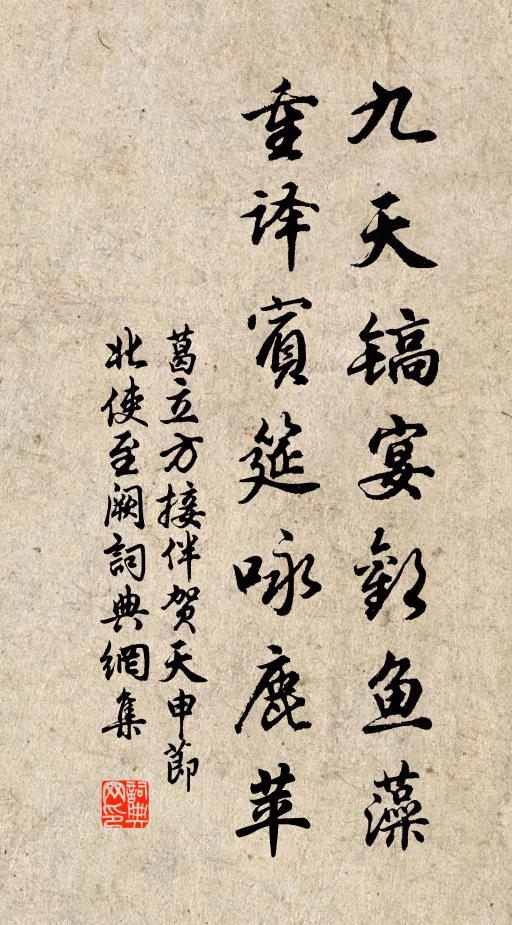 九天镐宴歡鱼藻
重译賓筵咏鹿苹
葛立方接伴贺天申节
北使至阙詞典網集
詞典网印